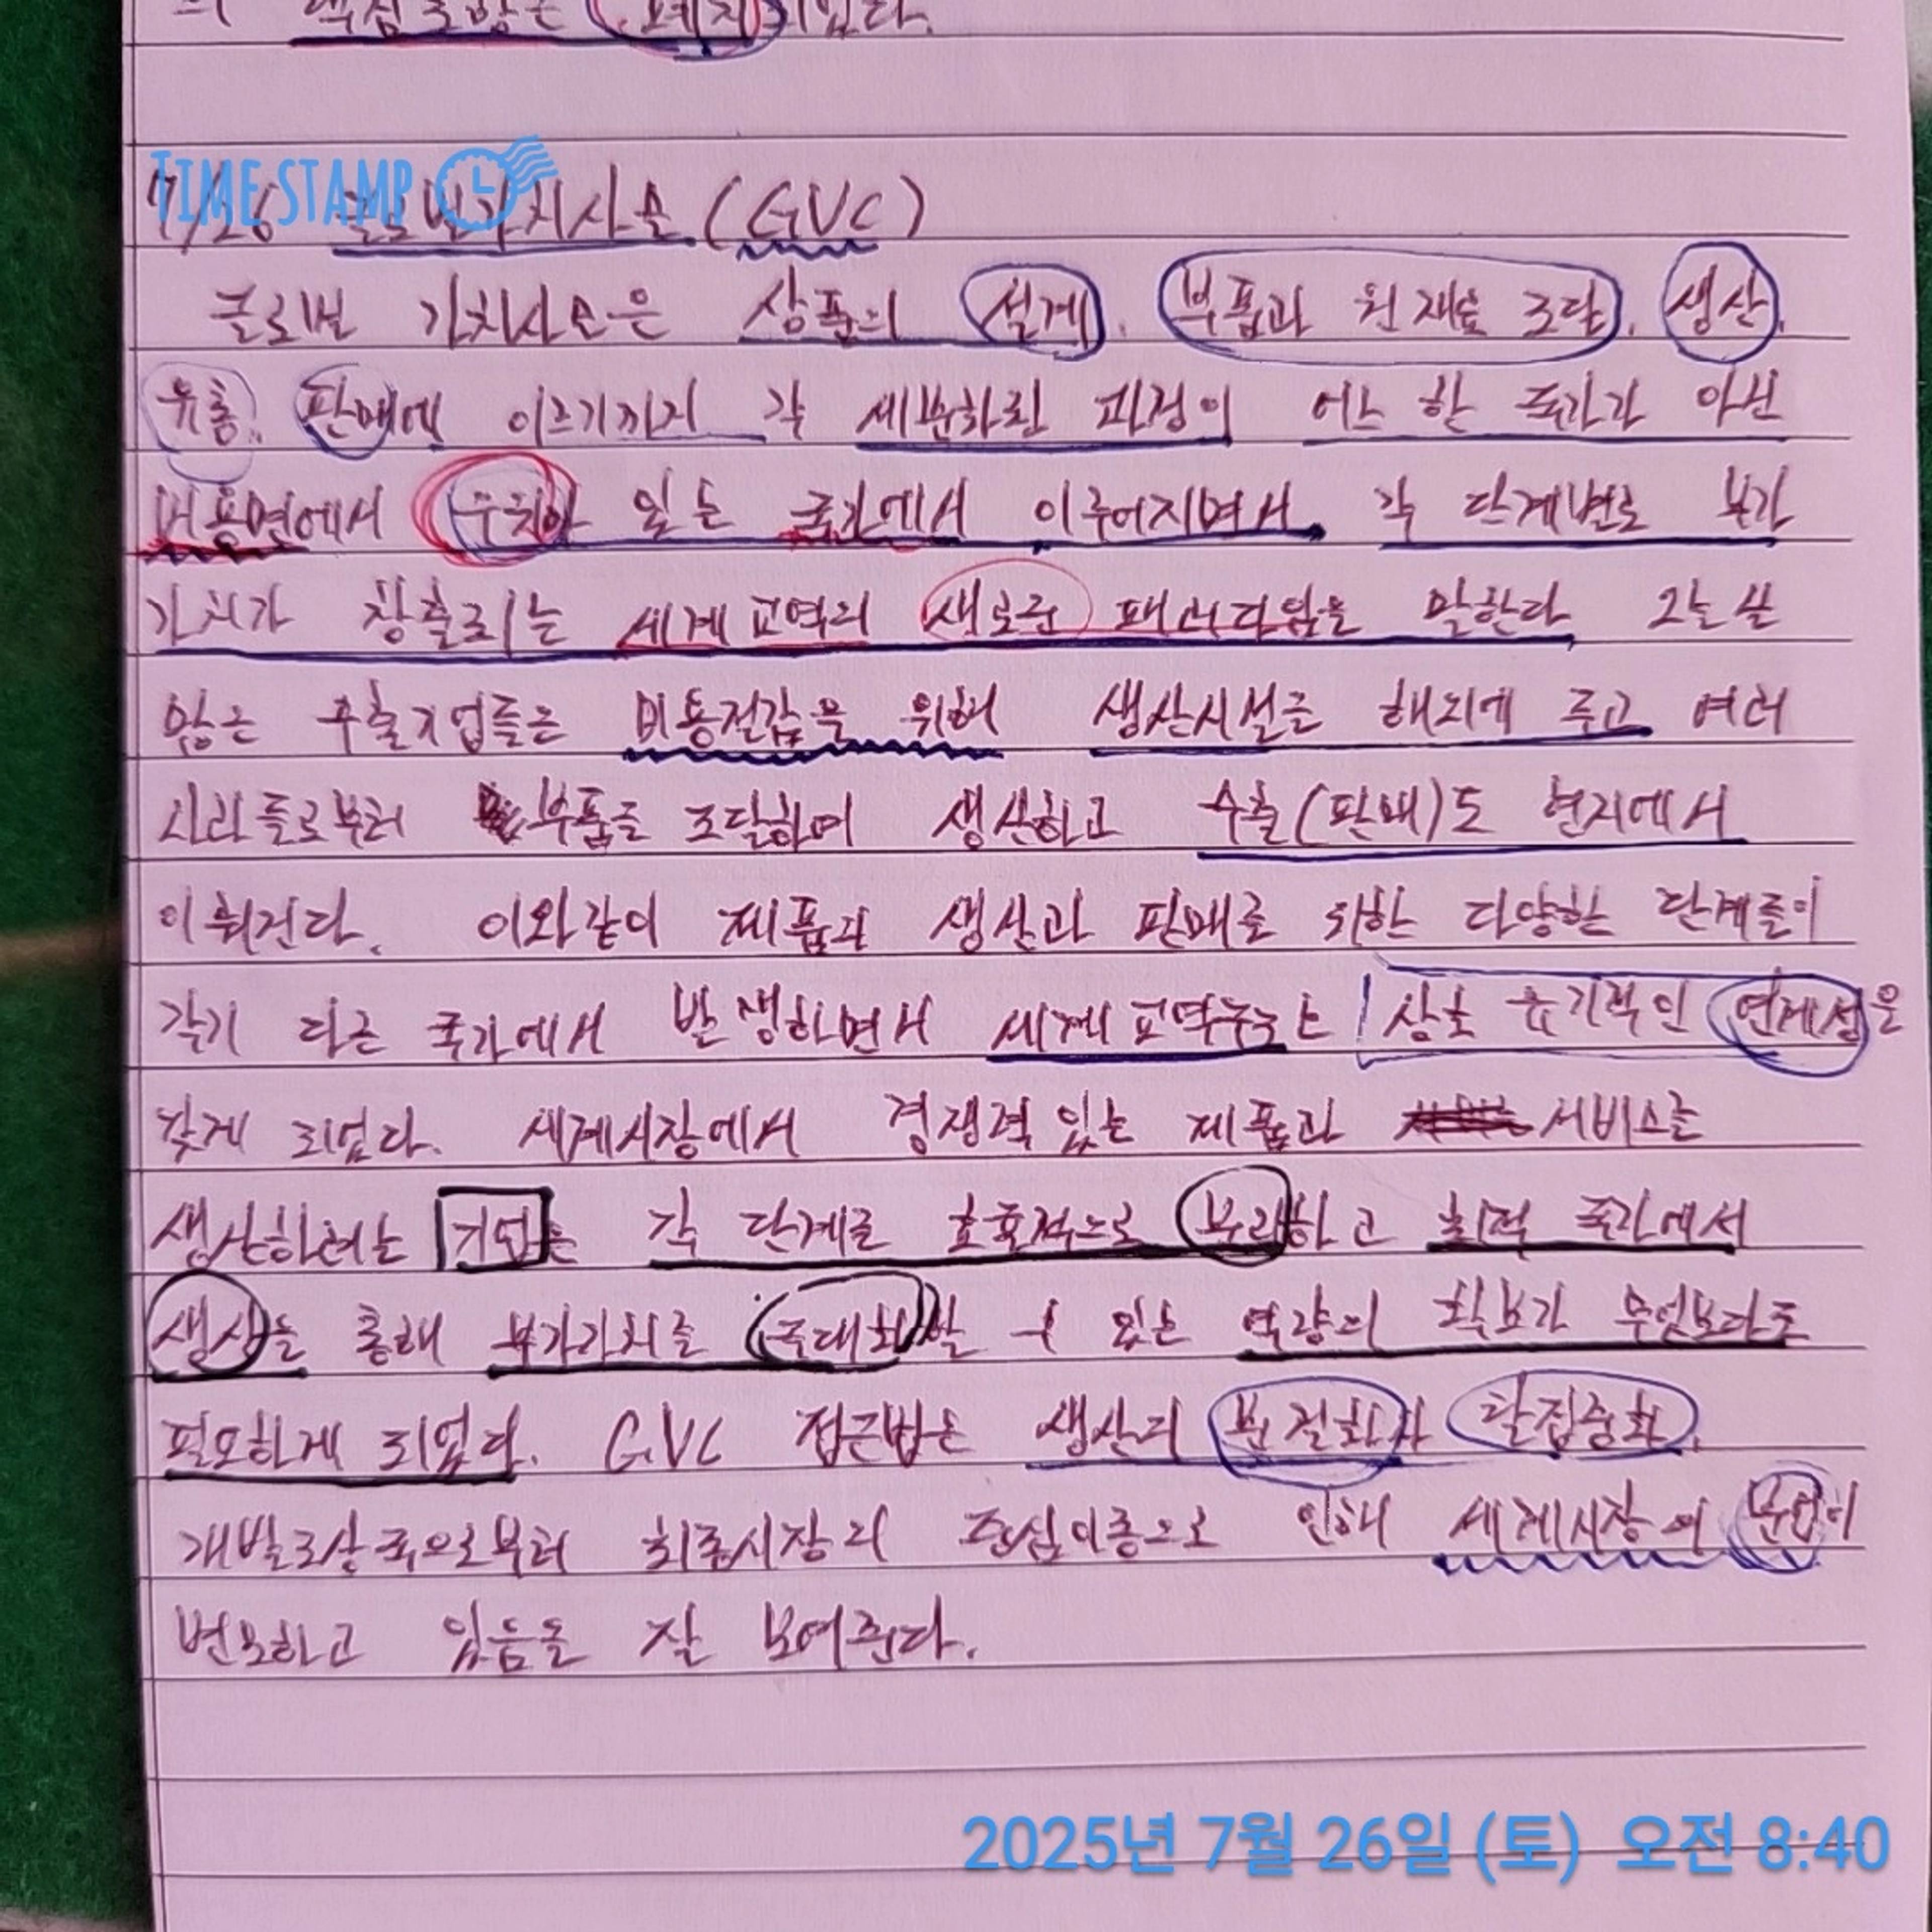 의 핵심조항은 폐지되었다.
TIME STAMP
7/26 글로벌가치사슬 (GVC)
글로벌 가치사슬은 상품의 설계, 부품과 원재료 조달, 생산,
유통, 판매에 이르기까지 각 세분화된 과정이 어느 한 국가가 아닌
비용면에서 우위가 있는 국가에서 이루어지면서 각 단계별로 부가
가치가 창출되는 세계교역의 새로운 패러다임을 말한다. 오늘날
많은 수출기업들은 비용절감을 위해 생산시설을 해외에 두고 여러
나라들로부터 부품을 조달하여 생산하고 수출(판매)도 현지에서
이뤄진다. 이와같이 제품의 생산과 판매를 위한 다양한 단계들이
각기 다른 국가에서 발생하면서 세계교역구조는 상호 유기적인 연계성을
갖게 되었다. 세계시장에서 경쟁력있는 제품과 서비스를
생산하려는 기업은 각 단계를 효율적으로 분리하고 최적 국가에서
생산을 통해 부가가치를 극대화할 수 있는 역량의 확보가 무엇보다도
필요하게 되었다. GVC 접근법은 생산의 분절화와 탈집중화,
개발도상국으로부터 최종시장의 중심이동으로 인해 세계시장의 무역이
변모하고 있음을 잘 보여준다.
2025년 7월 26일 (토) 오전 8:40